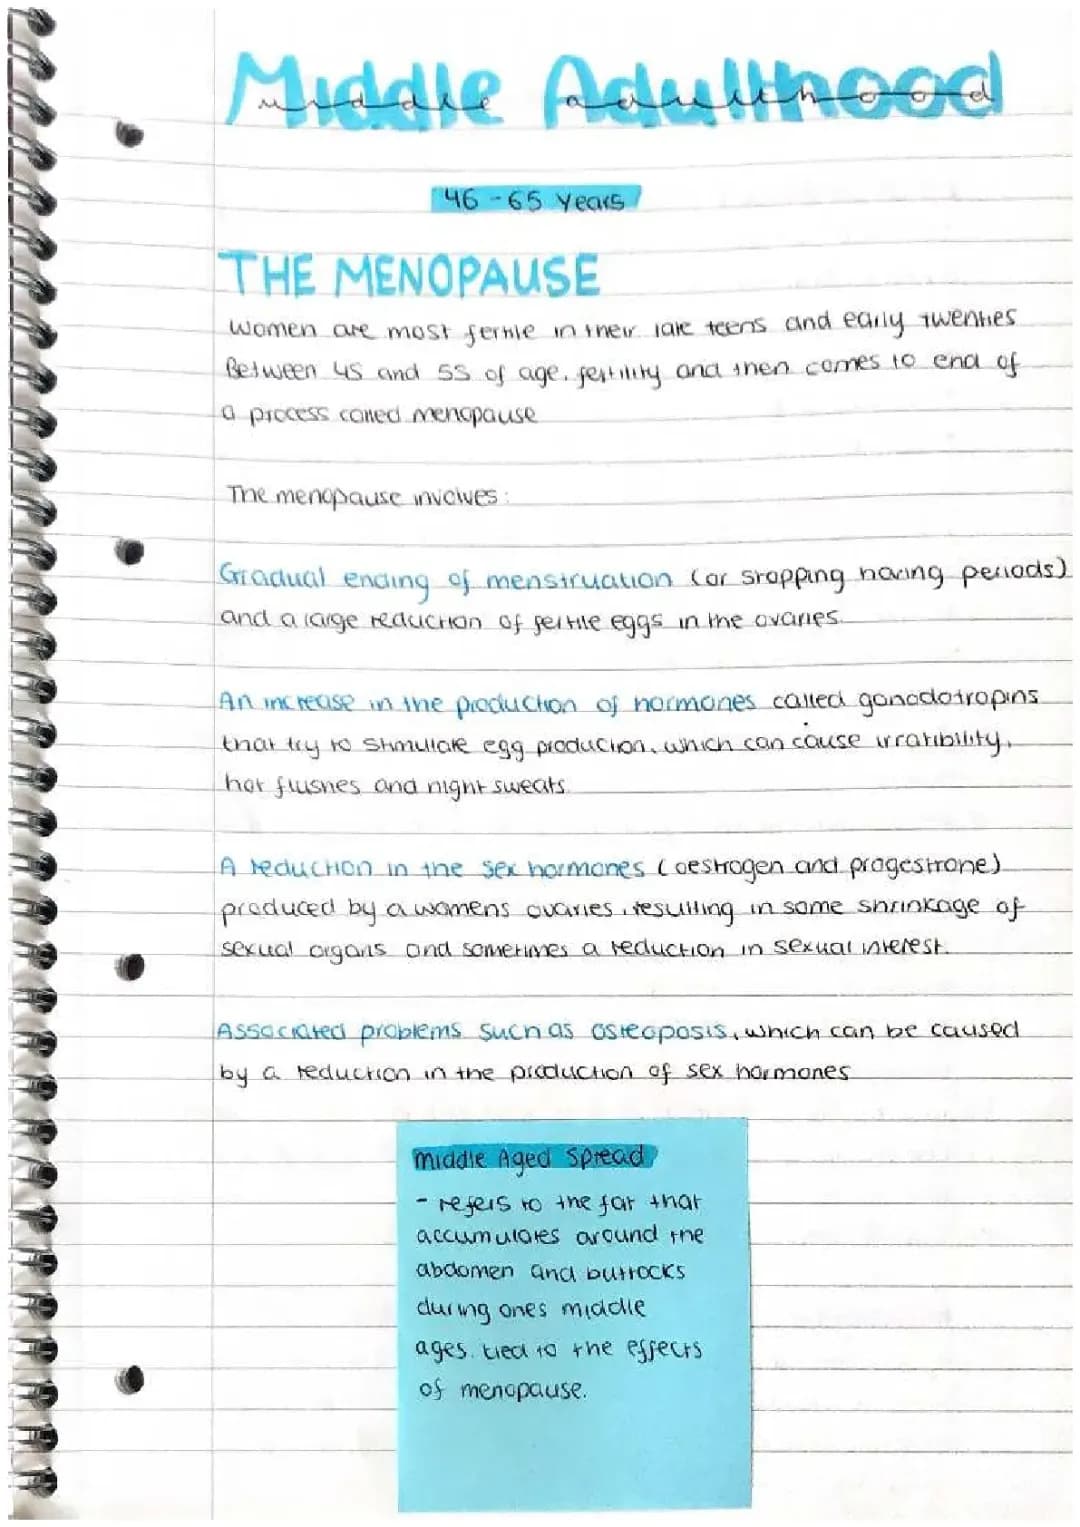 Middle Adulthood
middle adulthood
46 - 65 Years
THE MENOPAUSE
Women are most fertile in their late teens and early twenties
Between 45 and 55 of age, fertility and then comes to end of
a process called menopause
The menopause involves:
Gradual ending of menstruation (or stopping having periods)
and a large reduction of fertile eggs in the ovaries.
An increase in the production of hormones called gonodotropins
that try to stimulate egg production, which can cause irratibility,
hot flushes and night sweats.
A reduction in the sex hormones (oestrogen and progestrone)
produced by a womens ovaries, resulting in some shrinkage of
sexual organs and sometimes a reduction in sexual interest.
Associated problems such as osteoposis, which can be caused
by a reduction in the production of sex hormones
middle Aged Spread
- refers to the fat that
accumulates around the
abdomen and buttocks
during ones middle
ages. tied to the effects
of menopause.